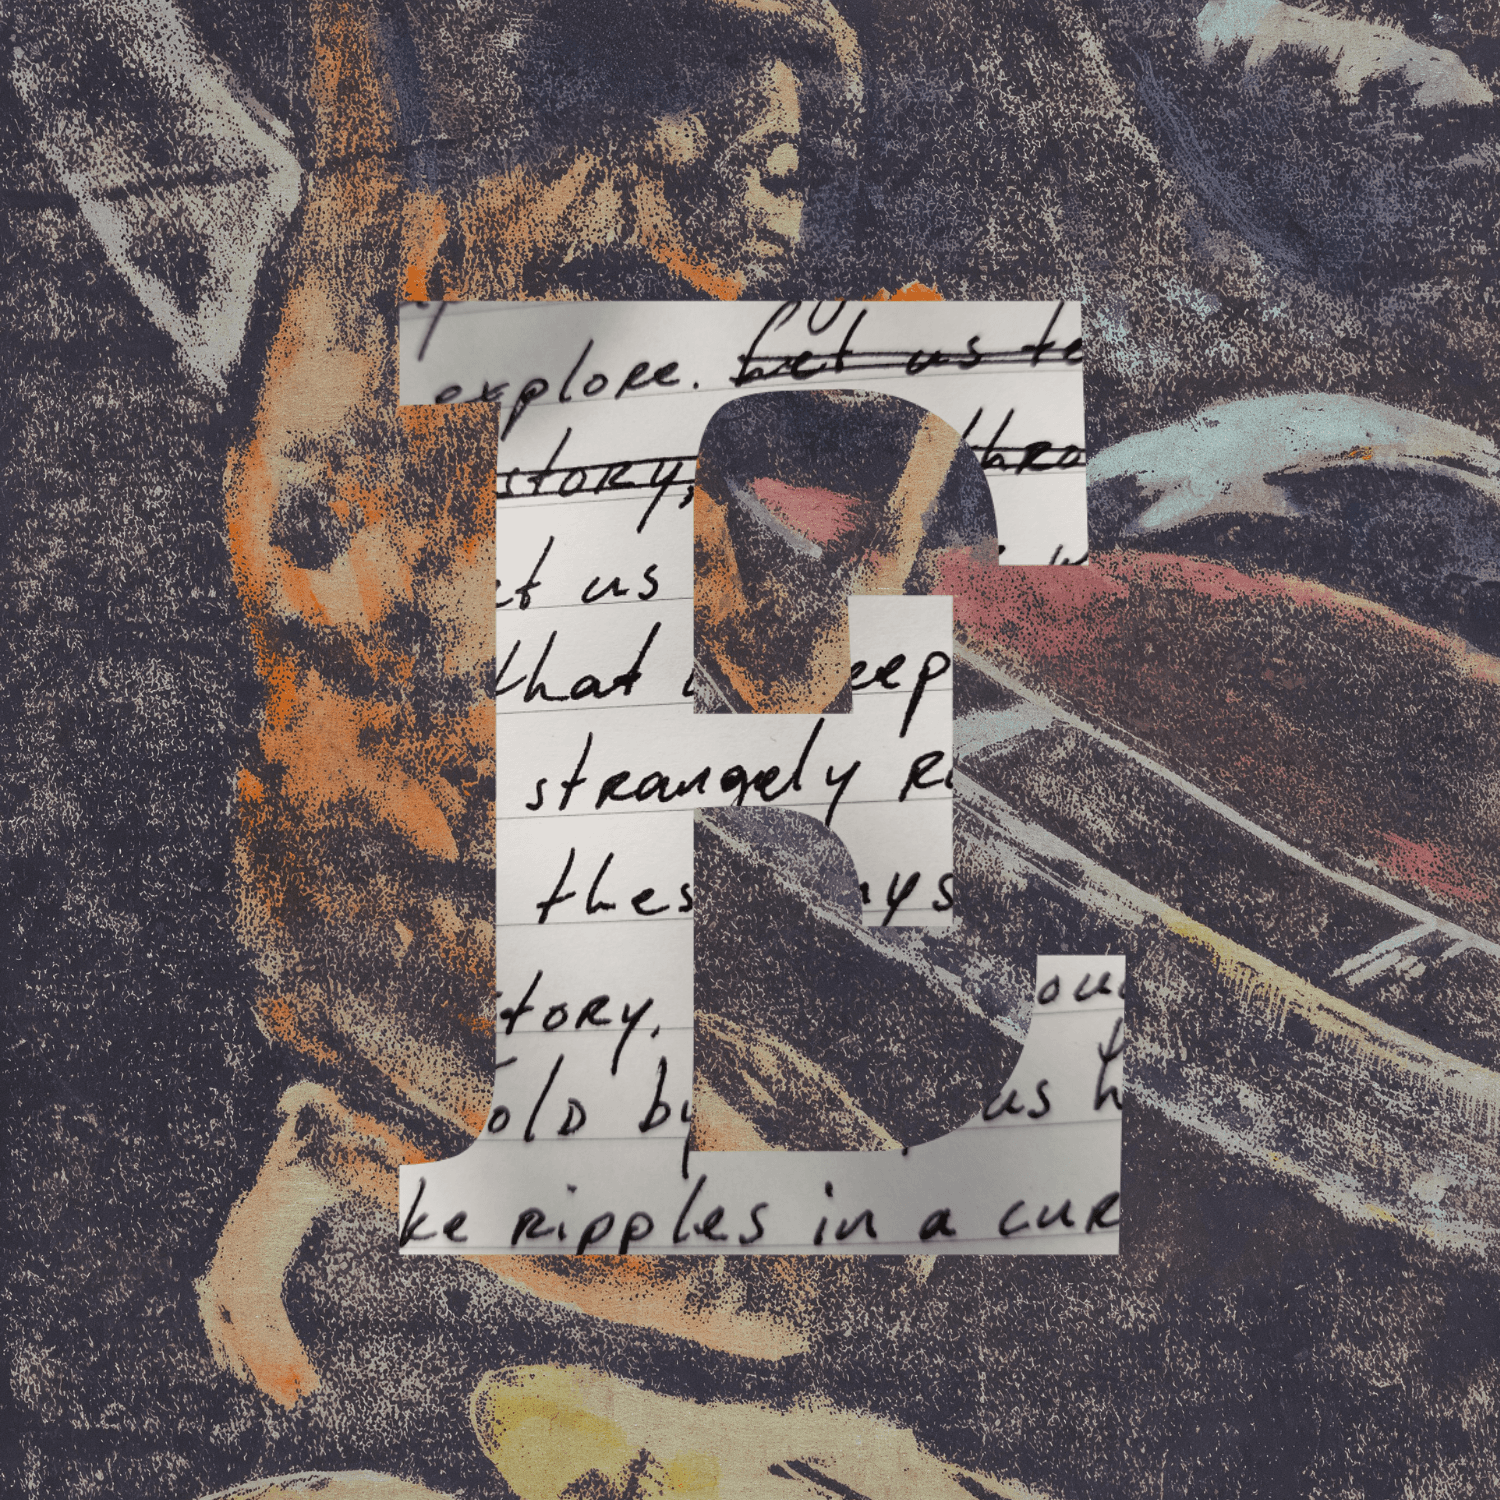 explore. Let us te
story, thro
et us
that eep
strangely R
thes ays
tory. ou
old by us h
ke ripples in a cur
E